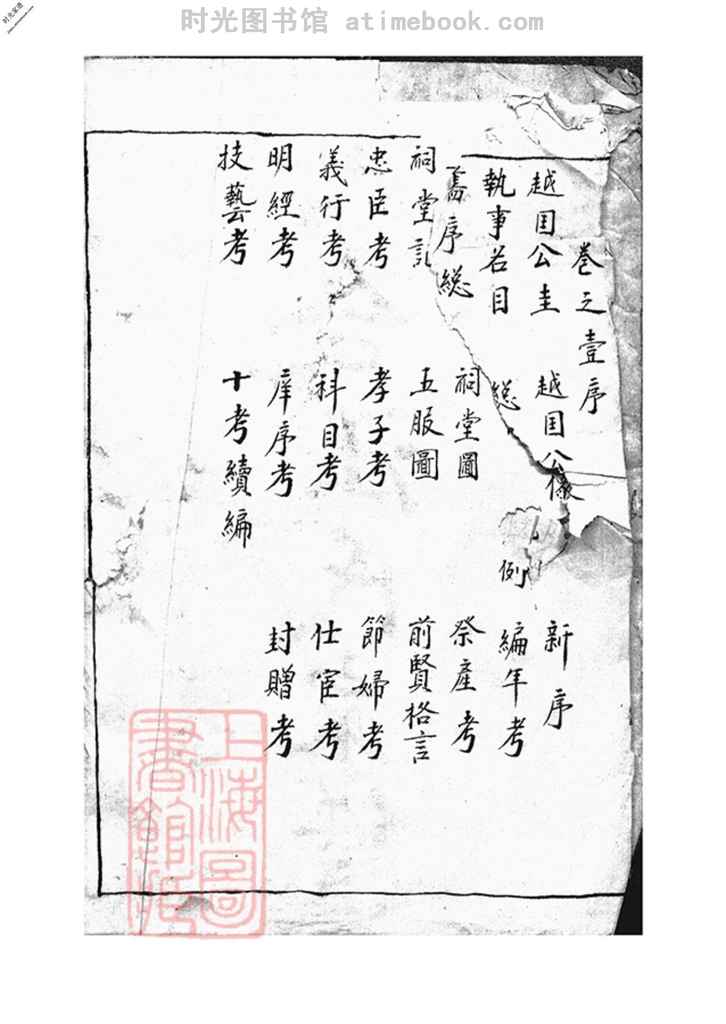 时光图书馆 atimebook.com
卷之壹序
越国公圭 越国公像 新序
執事名目 总 例 編年考
舊序總 祠堂圖 祭產考
祠堂記 五服圖 前賢格言
忠臣考 孝子考 節婦考
義行考 科目考 仕宦考
明經考 庠序考 封贈考
技藝考 十考續編
上海圖書館藏